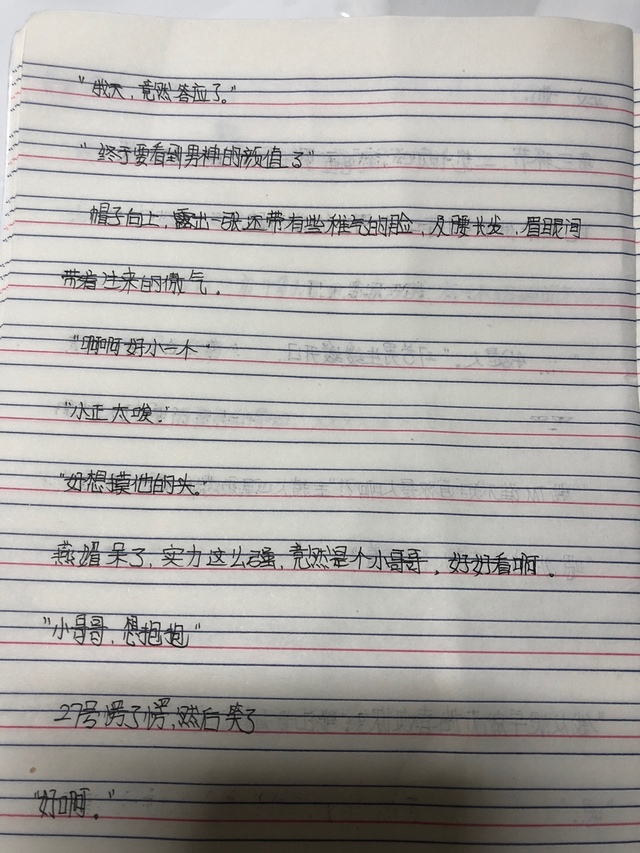 "我天，竟然答应了。"
"终于要看到男神的颜值了"
帽子向上，露出一张还带有些稚气的脸，及腰长发，眉眼间
带着注来的傲气。
"啊啊好小一个"
"小正太唉。"
"好想摸他的头。"
燕媚呆了，实力这么强，竟然是个小哥哥，好好看啊。
"小哥哥，想抱抱"
27号愣了愣，然后笑了
"好啊。"